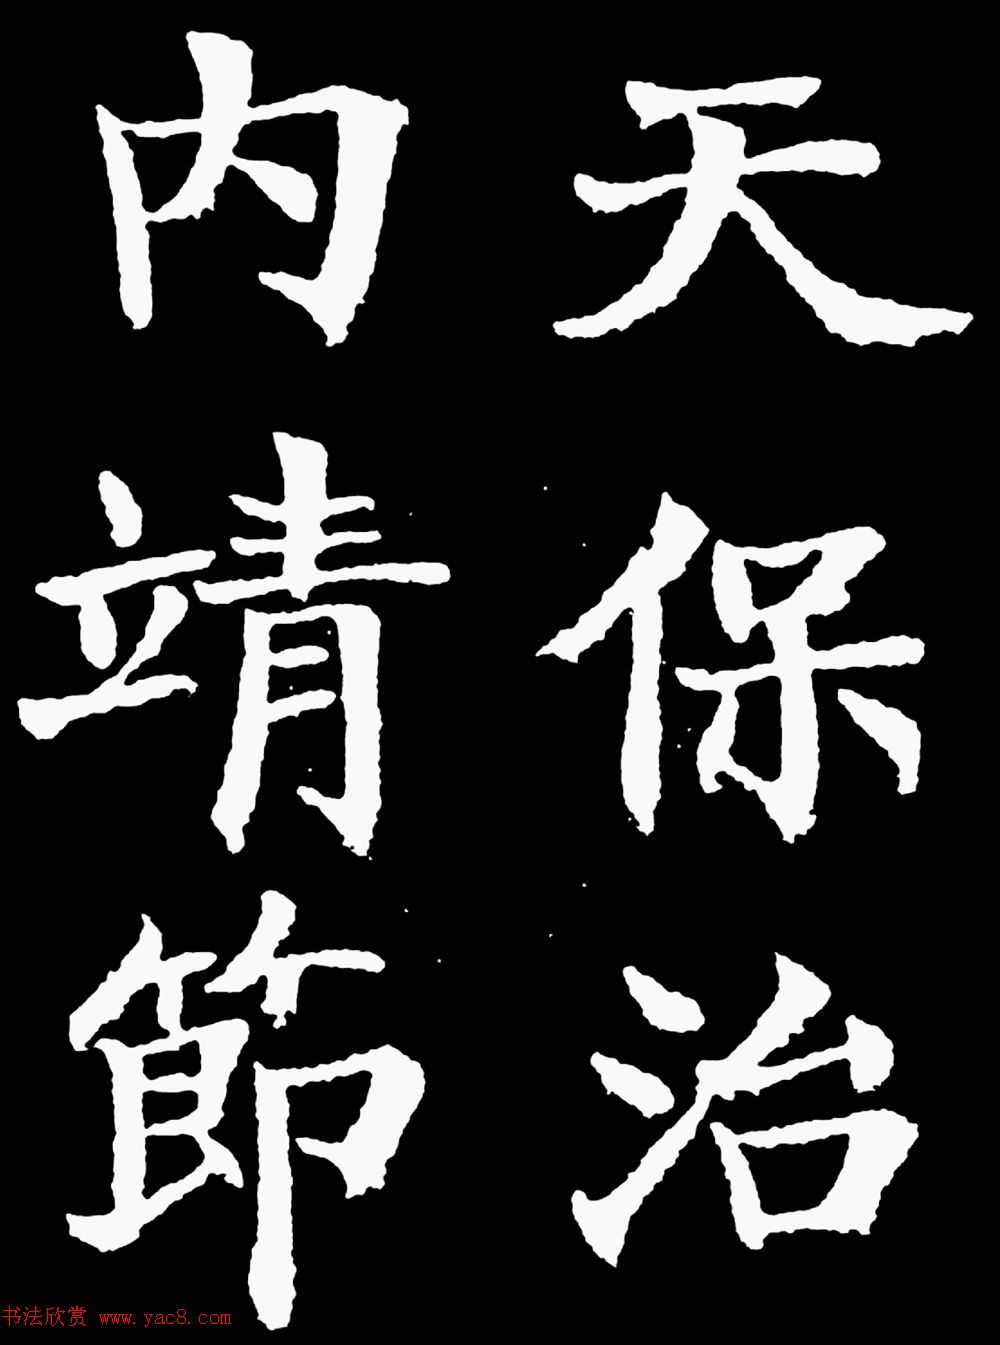 天保治
内靖節
书法欣赏 www.yac8.com